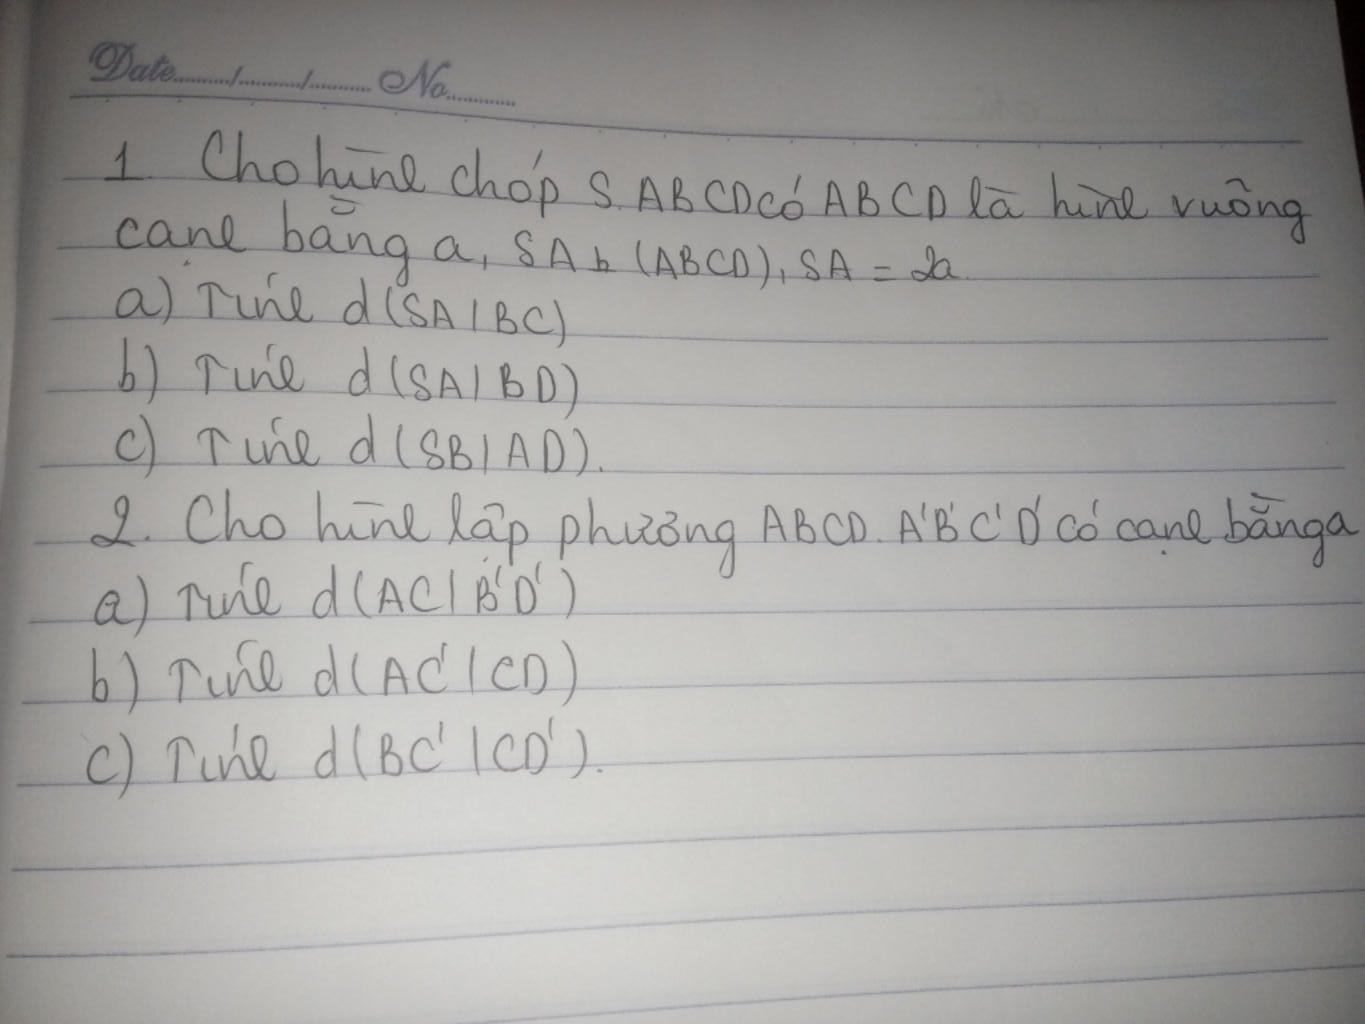 Date......../......../........ No..........
1. Cho hình chóp S.ABCD có ABCD là hình vuông
cạnh bằng a, SA ⊥ (ABCD), SA = 2a
a) Tính d(SA, BC)
b) Tính d(SA, BD)
c) Tính d(SB, AD).
2. Cho hình lập phương ABCD.A'B'C'D' có cạnh bằng a
a) Tính d(AC, B'D')
b) Tính d(AC', CD)
c) Tính d(BC', CD').